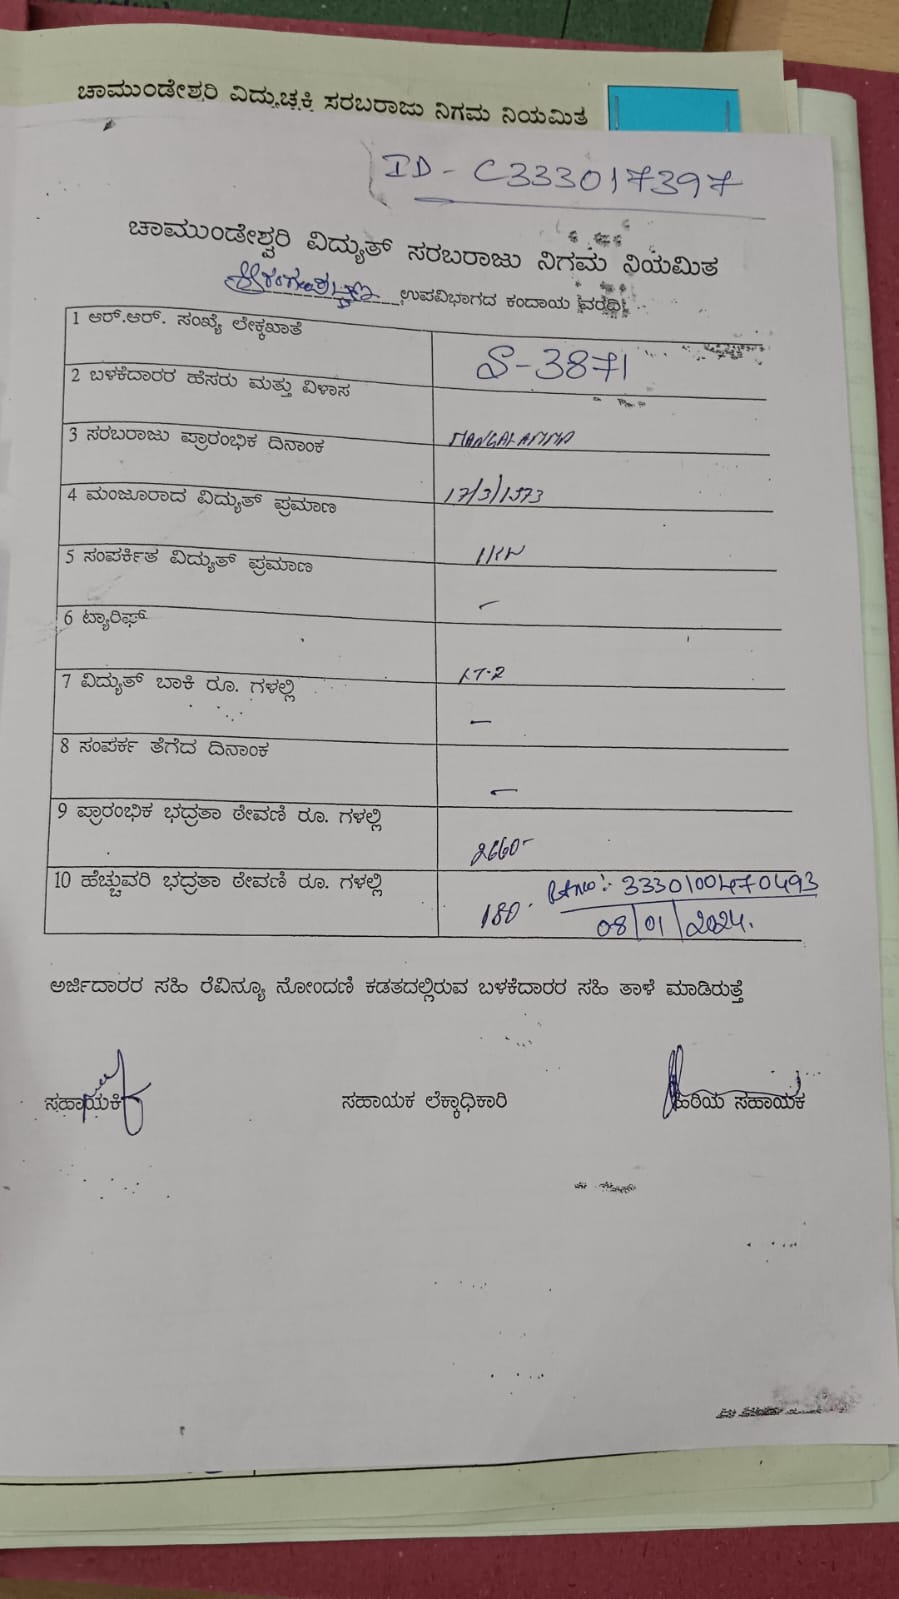 ಚಾಮುಂಡೇಶ್ವರಿ ವಿದ್ಯುಚ್ಛಕ್ತಿ ಸರಬರಾಜು ನಿಗಮ ನಿಯಮಿತ
ID - C333017397
ಚಾಮುಂಡೇಶ್ವರಿ ವಿದ್ಯುತ್ ಸರಬರಾಜು ನಿಗಮ ನಿಯಮಿತ
ಉಪವಿಭಾಗದ ಕಂದಾಯ ವರದಿ
1 ಆರ್.ಆರ್. ಸಂಖ್ಯೆ ಲೇಕ್ಕಖಾತೆ
S-3871
2 ಬಳಕೆದಾರರ ಹೆಸರು ಮತ್ತು ವಿಳಾಸ
MANGALAMMA
3 ಸರಬರಾಜು ಪ್ರಾರಂಭಿಕ ದಿನಾಂಕ
17/3/1973
4 ಮಂಜೂರಾದ ವಿದ್ಯುತ್ ಪ್ರಮಾಣ
1KW
5 ಸಂಪರ್ಕಿತ ವಿದ್ಯುತ್ ಪ್ರಮಾಣ
-
6 ಟ್ಯಾರಿಫ್
LT-2
7 ವಿದ್ಯುತ್ ಬಾಕಿ ರೂ. ಗಳಲ್ಲಿ
-
8 ಸಂಪರ್ಕ ತೆಗೆದ ದಿನಾಂಕ
-
9 ಪ್ರಾರಂಭಿಕ ಭದ್ರತಾ ಠೇವಣಿ ರೂ. ಗಳಲ್ಲಿ
2660-
10 ಹೆಚ್ಚುವರಿ ಭದ್ರತಾ ಠೇವಣಿ ರೂ. ಗಳಲ್ಲಿ
180- 3330100470493
08/01/2024.
ಅರ್ಜಿದಾರರ ಸಹಿ ರೆವಿನ್ಯೂ ನೋಂದಣಿ ಕಡತದಲ್ಲಿರುವ ಬಳಕೆದಾರರ ಸಹಿ ತಾಳೆ ಮಾಡಿರುತ್ತೆ
ಸಹಾಯಕಿ ಸಹಾಯಕ ಲೆಕ್ಕಾಧಿಕಾರಿ ಹಿರಿಯ ಸಹಾಯಕ